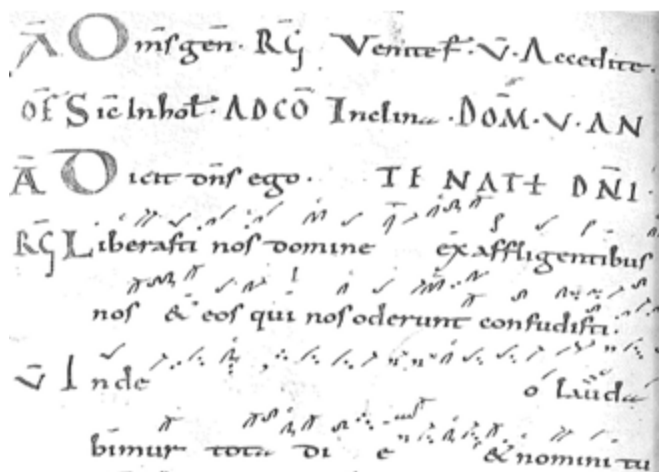 A Oms gen. RG Venite f. V. Accedite.
OF Sic In hol. AD CO Inclina. DOM. V. AN
A Dicit dns ego. TE NATT DNI.
RG Liberasti nos domine ex affligentibus
nos & eos qui nos oderunt confudisti.
V In de o lauda
bimur tota di e & nomini tu